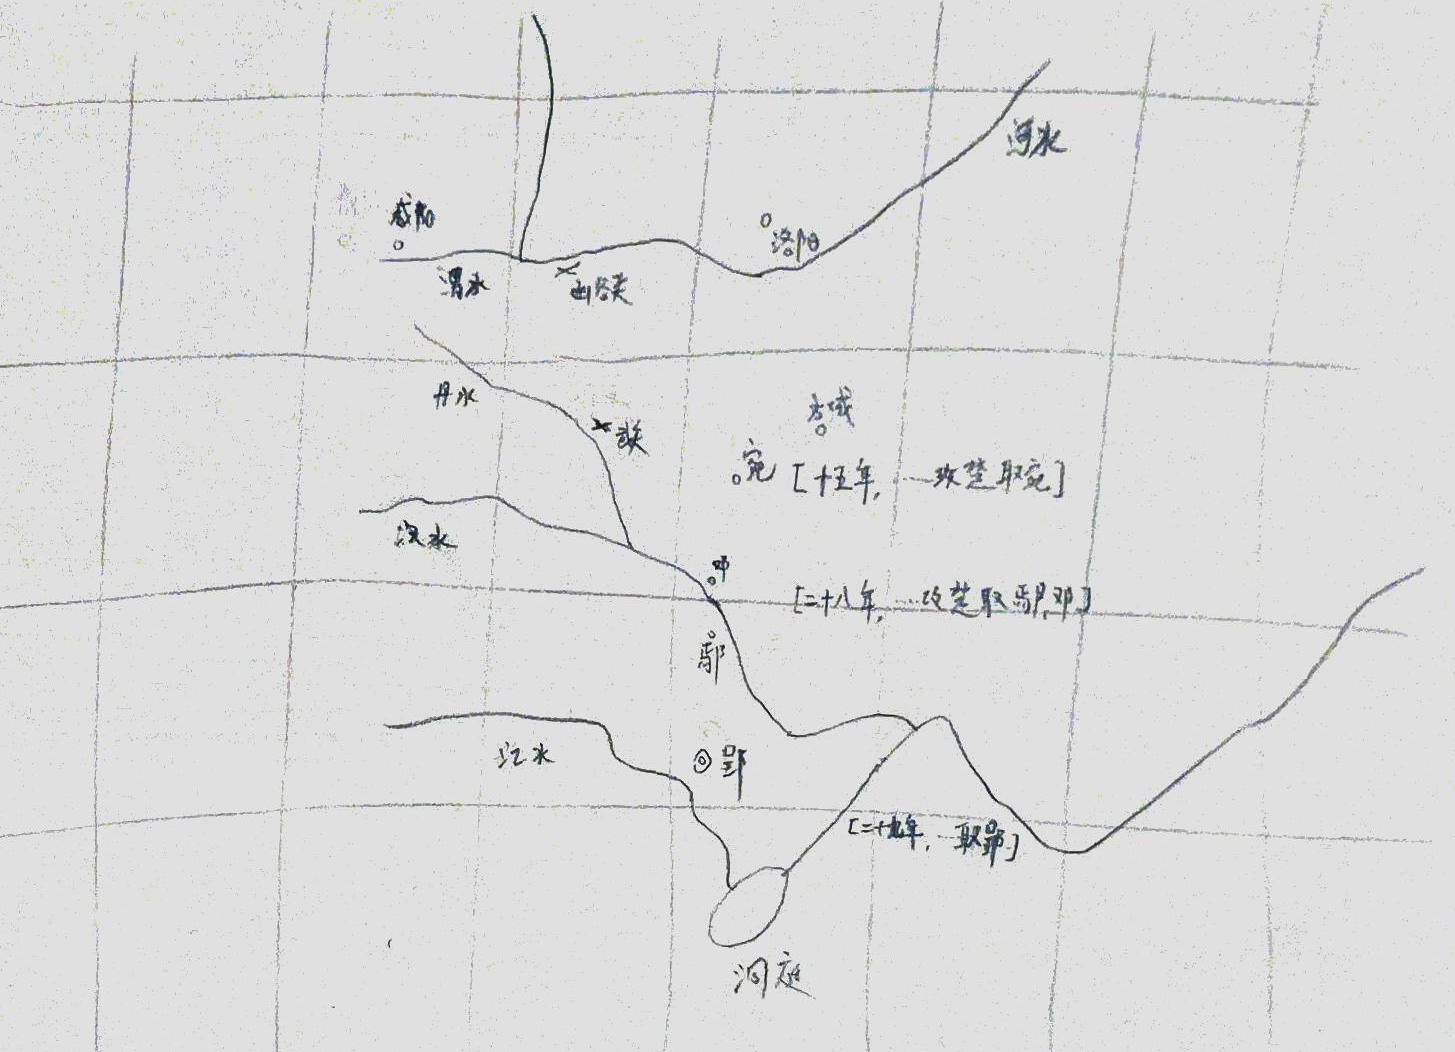 河水
咸阳
洛阳
渭水
函谷关
丹水
武关
方城
宛
[十五年,…攻楚取宛]
汉水
邓
[二十八年,…攻楚取鄢,邓]
鄢
江水
郢
[二十九年,…取郢.]
洞庭